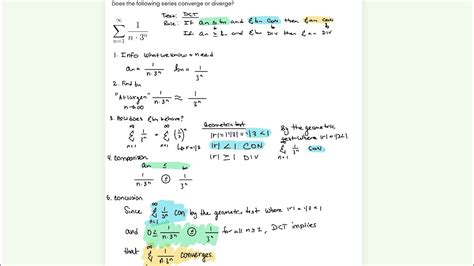 Does the following series converge or diverge?
∞
Σ 1/(n·3ⁿ)
n=1
Test: DCT
Rule: If an ≤ bn and Σbn CON then Σan CON
If an ≥ bn and Σbn DIV then Σan DIV
1. Info what we know + need
an = 1/(n·3ⁿ) bn = 1/3ⁿ
2. Find bn
"At large n" 1/(n·3ⁿ) ≈ 1/3ⁿ
n→∞
3. How does Σbn behave?
∞ ∞
Σ 1/3ⁿ = Σ (1/3)ⁿ
n=1 n=1
↳ r=1/3
Geometric test
|r| = |1/3| = 1/3 < 1
|r| < 1 CON
|r| ≥ 1 DIV
By the geometric
test where |r| = 1/3 < 1
∞
Σ 1/3ⁿ CON.
n=1
4. Comparison
an ≤ bn
1/(n·3ⁿ) ≤ 1/3ⁿ
5. Conclusion
Since Σ 1/3ⁿ con by the geometric test where |r| = 1/3 < 1
and 0 ≤ 1/(n·3ⁿ) ≤ 1/3ⁿ for all n ≥ 1, DCT implies
that Σ 1/(n·3ⁿ) converges.